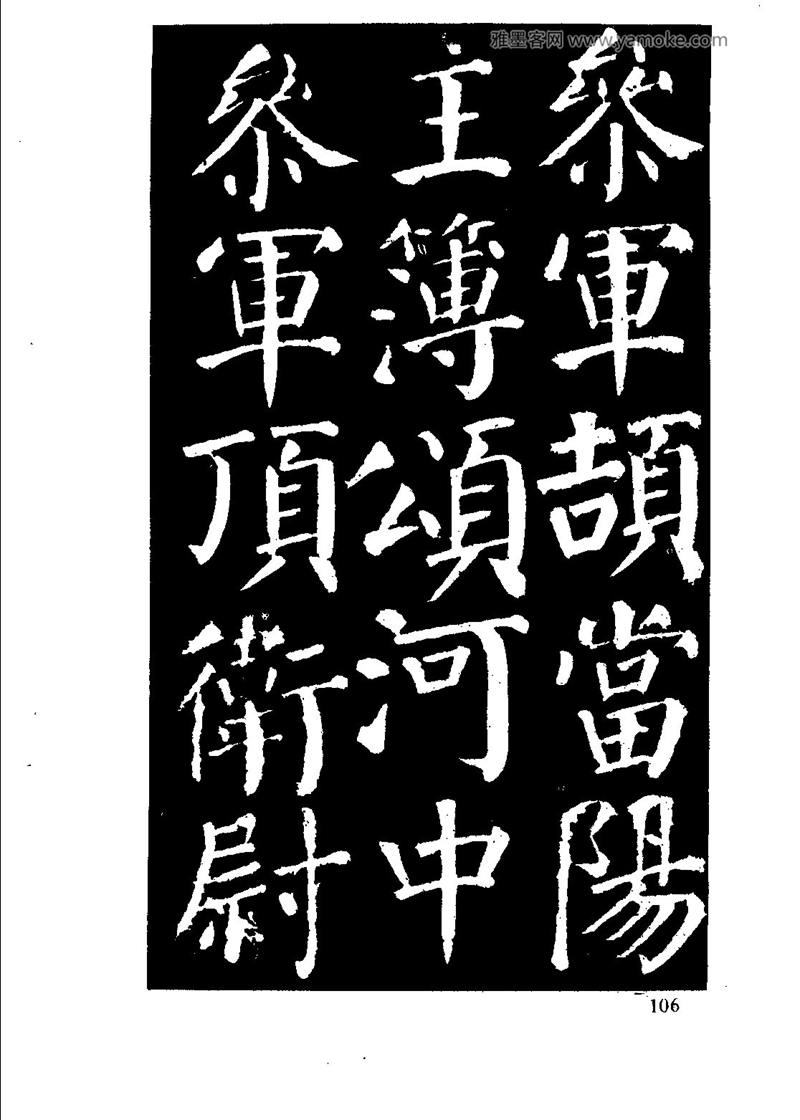 雅墨客网 www.yamoke.com
叅軍頡當陽
主簿頌河中
叅軍頂衛尉
106